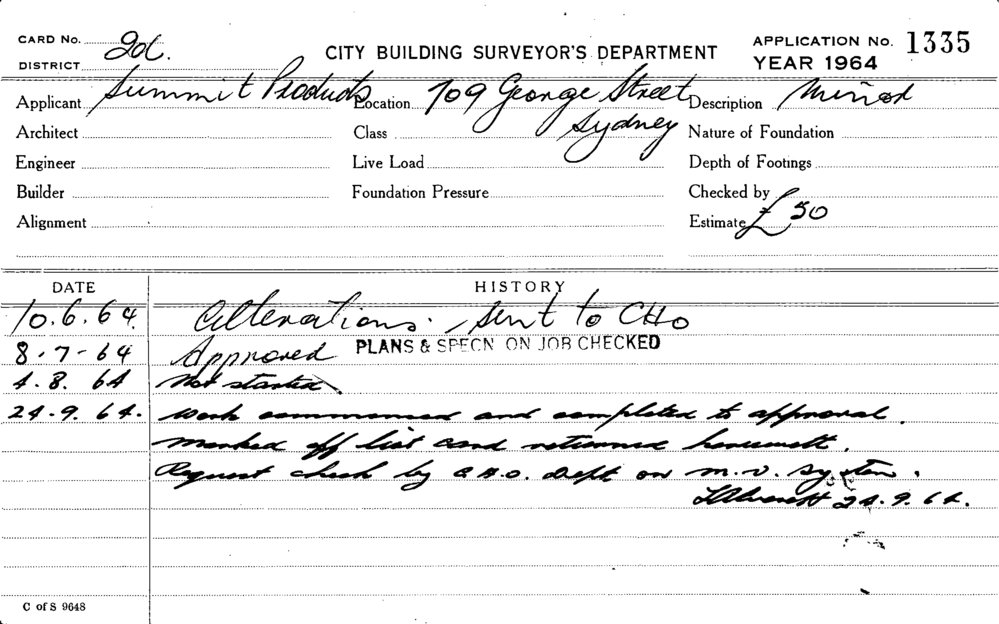 CARD No. 20c.
CITY BUILDING SURVEYOR'S DEPARTMENT
APPLICATION No. 1335
DISTRICT
YEAR 1964
Applicant Summit Products Location 709 George Street Description Minor
Architect Class Sydney Nature of Foundation
Engineer Live Load Depth of Footings
Builder Foundation Pressure Checked by
Alignment Estimate £ 50
DATE HISTORY
10.6.64 Alterations. sent to CHO
8-7-64 Approved PLANS & SPECN ON JOB CHECKED
4.8.64 Not started
24.9.64. Work commenced and completed to approval.
Marked off list card returned herewith.
Request check by C.H.O. Dept on M.V. System.
24.9.64.
C of S 9648